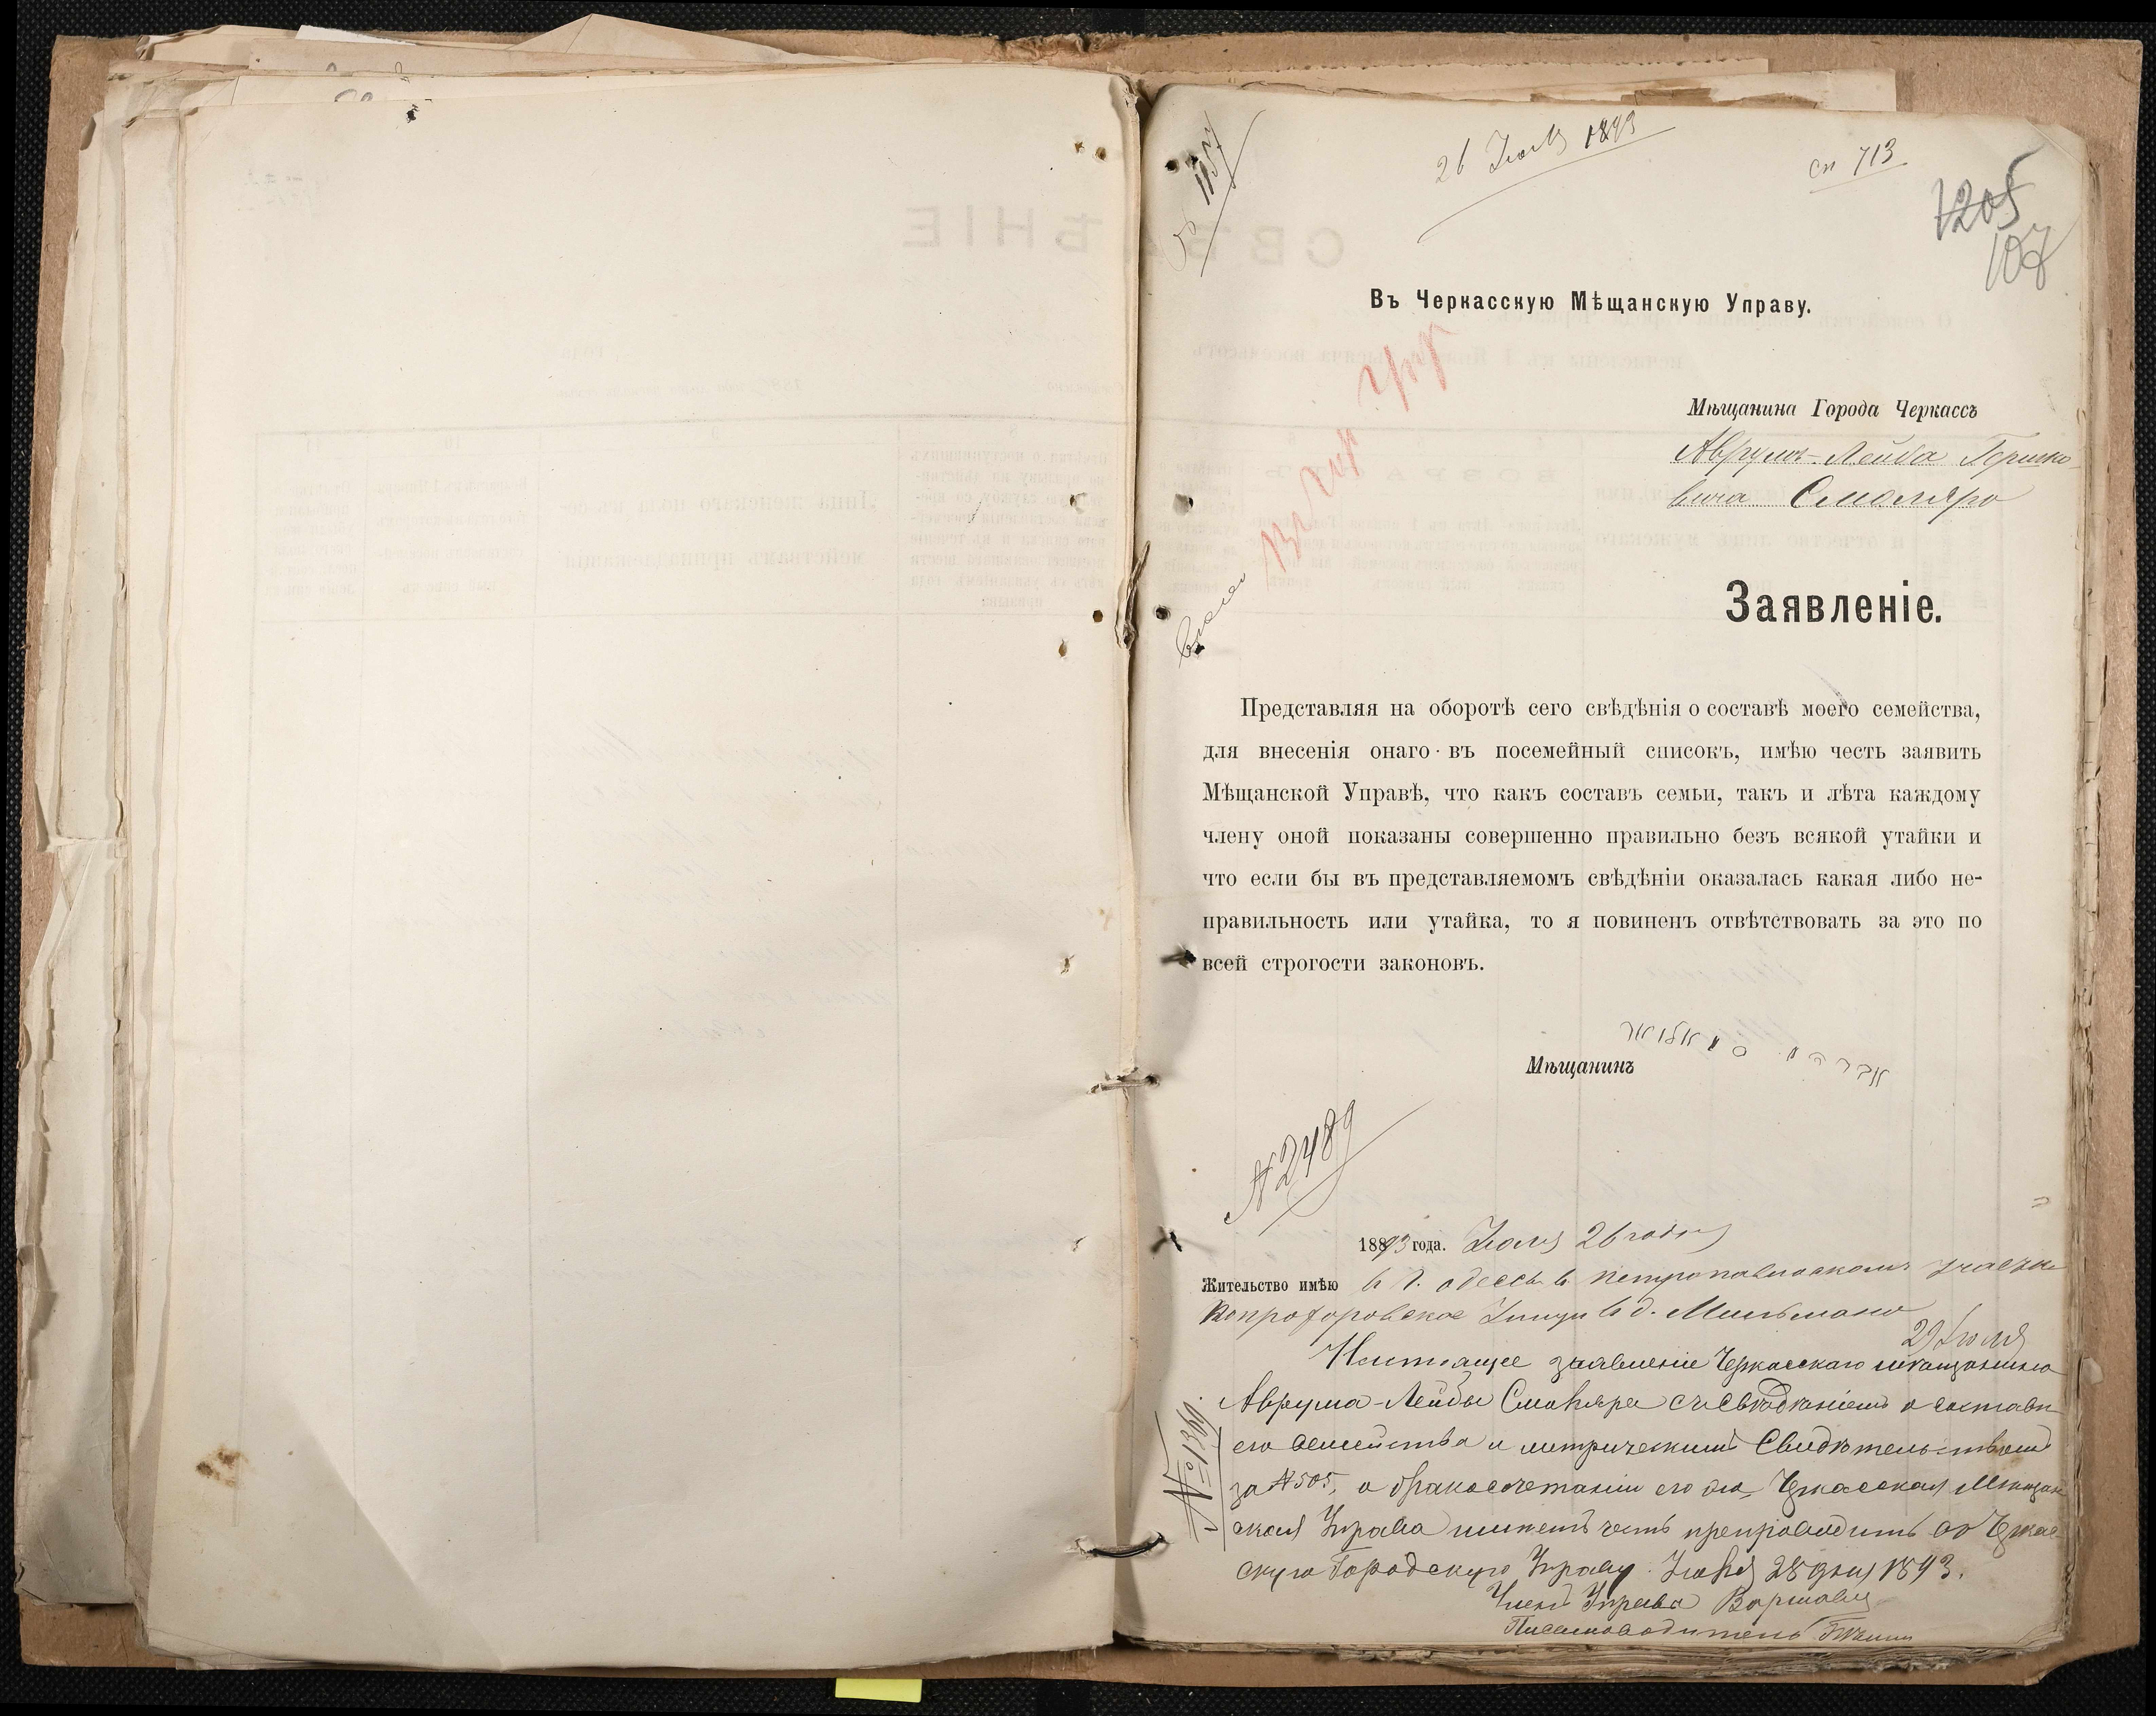 26 Іюля 1893
сп 713
1157
1205
107
Въ Черкасскую Мѣщанскую Управу.
Мѣщанина Города Черкассъ
Аврумъ-Лейба Гершко-
вича Смоляро
Заявленіе.
Представляя на оборотѣ сего свѣдѣнія о составѣ моего семейства,
для внесенія онаго въ посемейный списокъ, имѣю честь заявить
Мѣщанской Управѣ, что какъ составъ семьи, такъ и лѣта каждому
члену оной показаны совершенно правильно безъ всякой утайки и
что если бы въ представляемомъ свѣдѣніи оказалась какая либо не-
правильность или утайка, то я повиненъ отвѣтствовать за это по
всей строгости законовъ.
Мѣщанинъ
№ 2489
1893 года. Іюля 26 
Жительство имѣю в г. одессѣ в петропавловскомъ участке
в д. Мильмано
29 Іюля
Настоящее заявленіе Черкасскаго мѣщанина
Аврума-Лейбы Смоляра съ свѣдѣніемъ о составѣ
его семейства и метрическимъ свидѣтельствомъ
за №505, о бракосочетаніи его Черкасская Мѣщан
ская Управа имѣетъ честь препроводить въ Черкас
скую Городскую Управу. Іюля 28 дня 1893.
№ 1369.
Членъ Управы
Письмоводитель